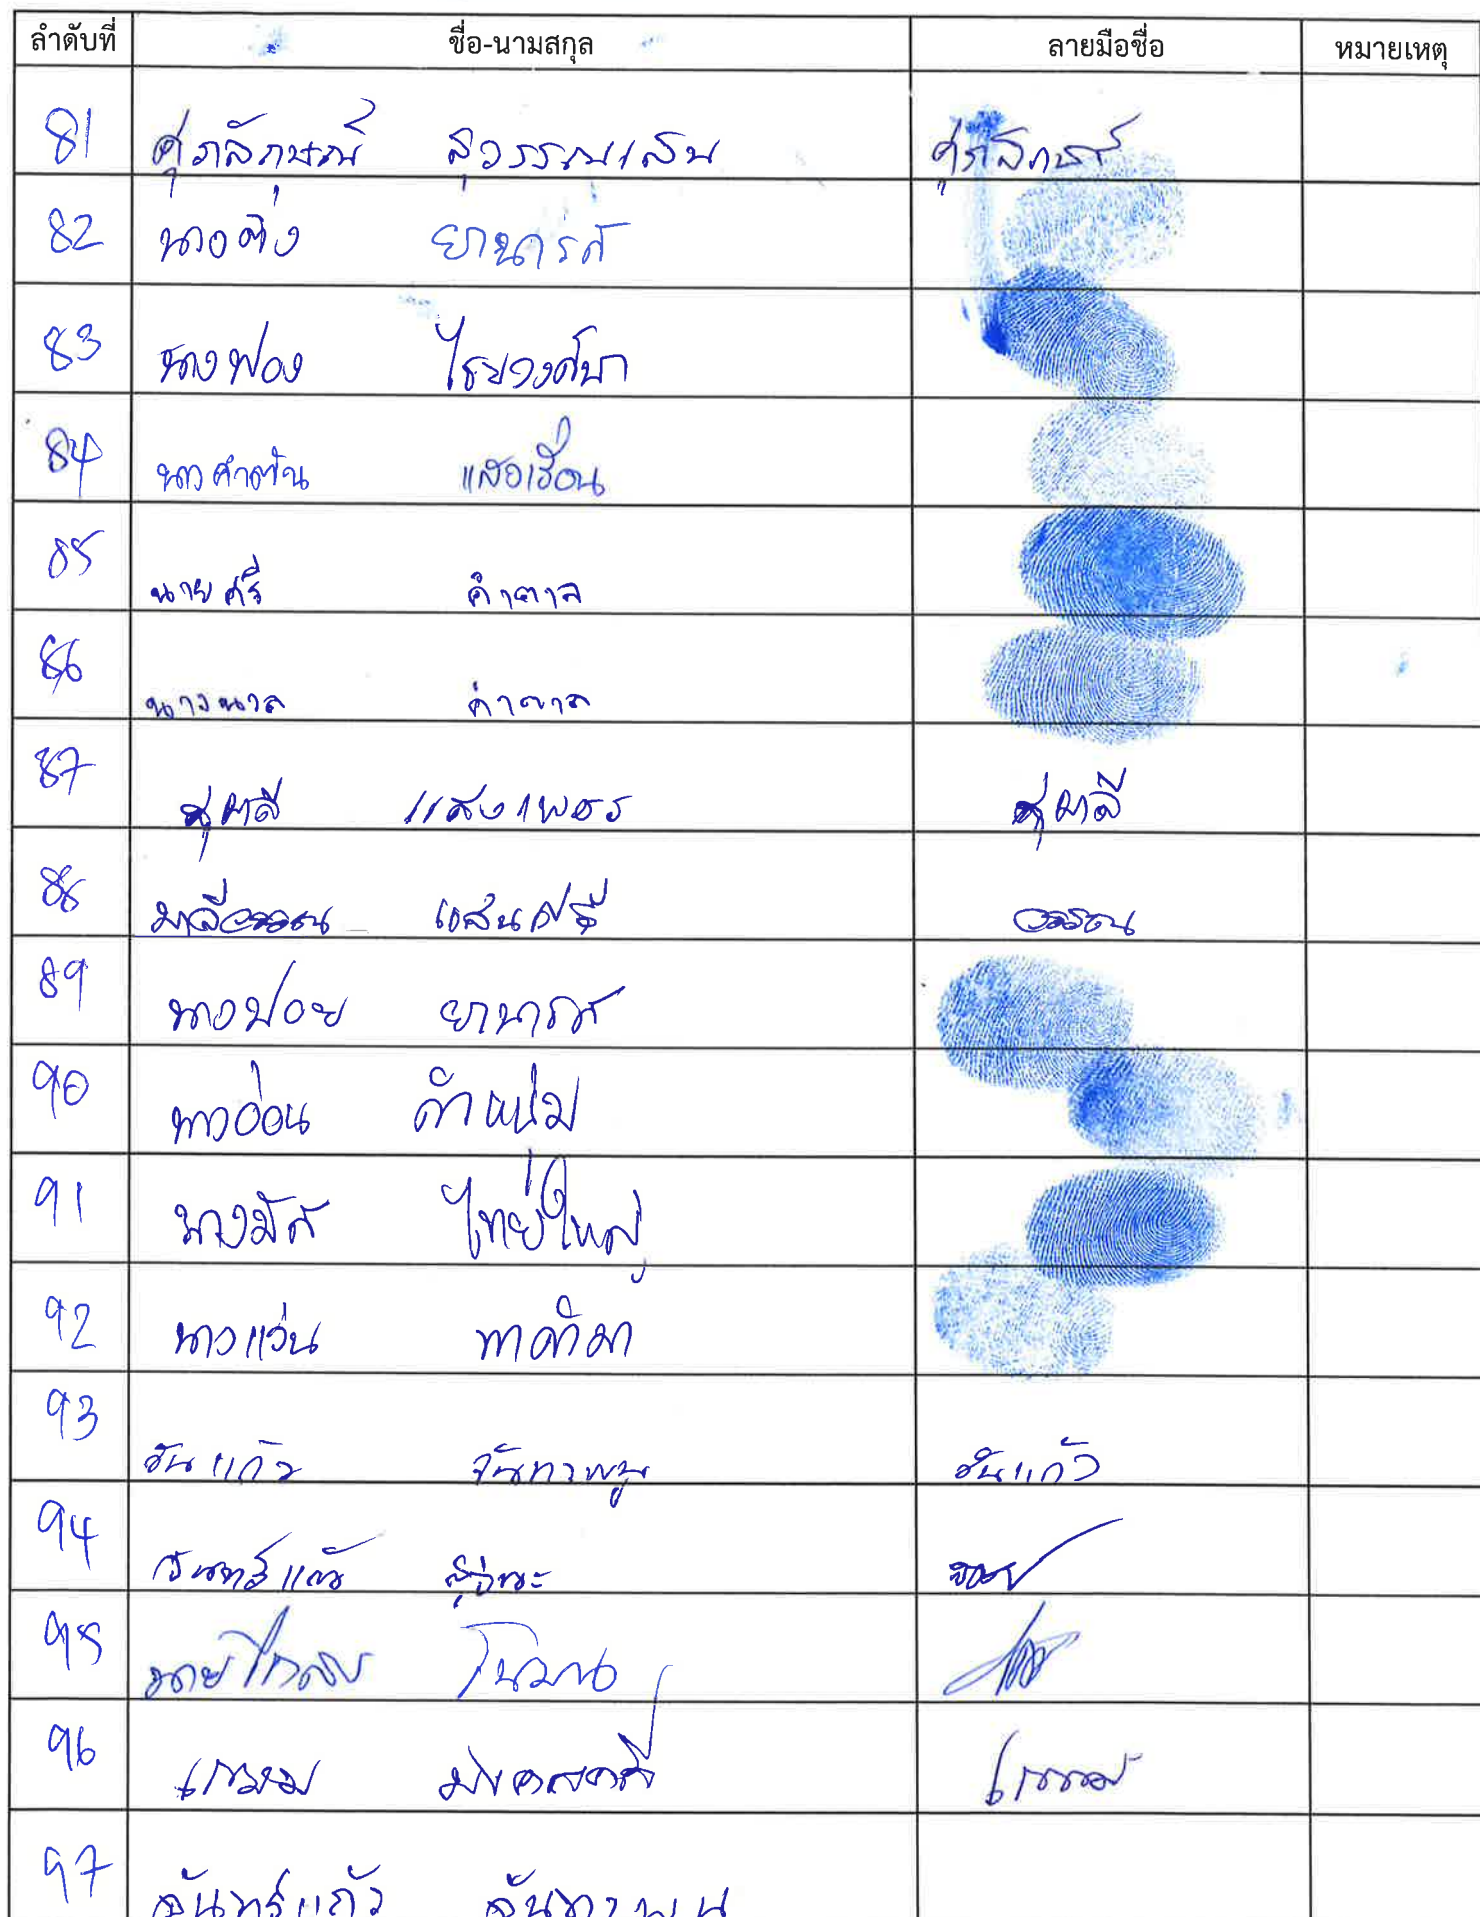 ลำดับที่ ชื่อ-นามสกุล ลายมือชื่อ หมายเหตุ
81 ศุภลักษณ์ สุวรรณเสน ศุภลักษณ์
82 นางติ๊ง ยานารศ
83 นางฟอง ไชยวงศ์นา
84 นางคำตัน แสงเรือน
85 นายศรี คำตาล
86 นางนวล คำตาล
87 สุมาลี แสงเพชร สุมาลี
88 มาลีวรรณ แสนศรี วรรณ
89 นางปอย ยานารศ
90 นางอ่อน คำหน่ม
91 นางมัก ไทยใหญ่
92 นางแว่น ทาคำมา
93 จันแก้ว จันทาพูน จันแก้ว
94 จันทร์แก้ว
95 นาย
96
97 จันทร์แก้ว